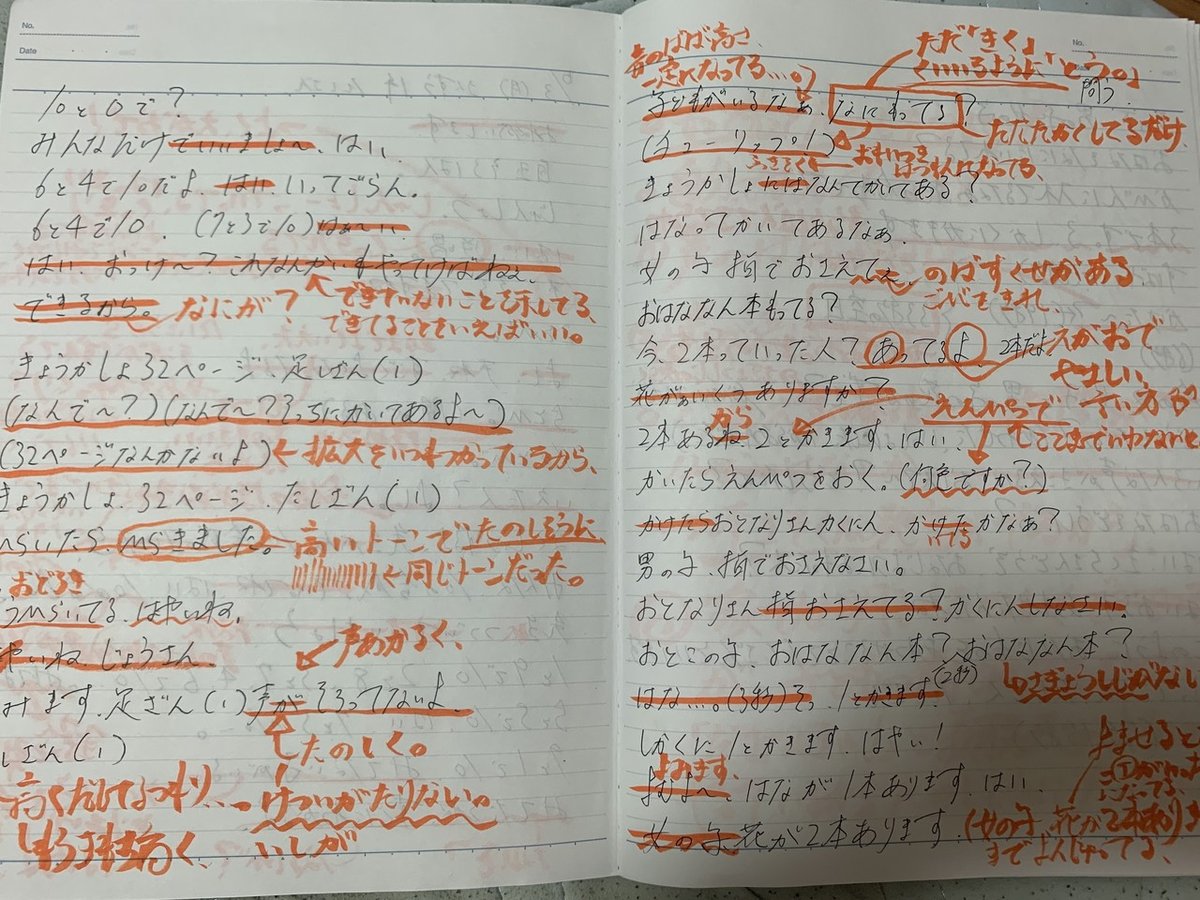 No.
Date
10と0で?
みんなだけでいいましょ〜、はい
6と4で10だよ、はいいってごらん。
6と4で10. (7と3で10)はぁ〜い
はい、おっけ〜? これなんかいもやってけばねぇ
できるから。なにが?
できていないことを示してる、
できてることをいえばいい。
きょうかしょ32ページ、足しざん(1)
(なんで〜?)(なんで〜?そっちにかいてあるよ〜)
(32ページなんかないよ)←拡大をいつもつかっているから、
きょうかしょ、32ページ、たしざん(1)
ひらいたら、ひらきました。
高いトーンでたのしそうに
←同じトーンだった。
おどろき
ひらいてる、はやいね。
やいね じょうさん
声あかるく、
みます、足ざん(1)声がそろってないよ
たのしく。
しざん(1)
高くだしてるつもり、、。
もっと高く、
けついがたりない。
いしが
No.
声のはばが高さ、
一定になってる…。
ただ「きく」
くいいるように「とう。」
問う
子どもがいるなぁ、なにもってる?
ただたかくしてるだけ
(チューリップ!)
ふきそく
きょうかしょにはなんてかいてある?
はなってかいてあるなぁ、
女の子 指でおさえてぇ
のばすくせがある
ごびをきれ、
おはななん本もってる?
今、2本っていった人? あってるよ、2本だよ
えがおで
やさしい
言い方る
花がぁいくつありますか?
から
2本あるね、2とかきます、はい、
えんぴつで
ここまでいわないと
かいたらえんぴつをおく。(何色ですか?)
かけたらおとなりさんかくにん、かけたかなぁ?
けてる
男の子、指でおさえなさい。
おとなりさん 指おさえてる? かくにんしなさい
おとこの子、おはななん本? おはななん本?
はな…。(3秒)そ、1とかきます(2秒)
さぎょうしじがない
しかくに1とかきます、はやい!
よみます、
よむよ〜、はなが1本あります、はい
よませると
女の子 花が2本あります、(女の子、花が2本あり)
までよんじゃってる、